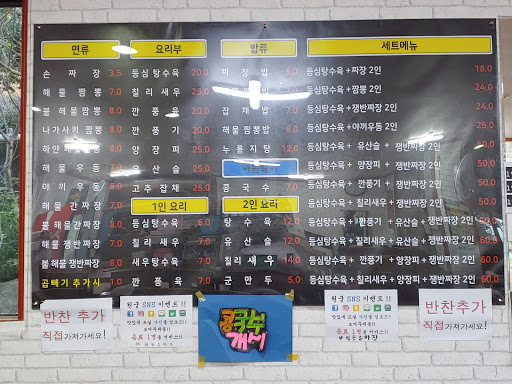 면류
손 짜 장 3.5
해 물 짬 뽕 7.0
불 해물 짬뽕 8.0
나가사키 짬뽕 8.0
하얀해물
해 물 우 동 7.0
야 끼 우 동
해 물 간 짜 장 7.0
불 해물간짜장 8.0
해물 쟁반짜장
불해물 쟁반짜장 8.0
곱빼기 추가 시 1.0
요리부
등심 탕수육 20.0
칠리 새우 25.0
깐 풍 육 20.0
깐 풍 기 20.0
양 장 피 25.0
유 산 슬 25.0
고추 잡채 25.0
1인 요리
등심탕수육 6.0
칠리새우 7.0
새우탕수육 7.0
깐 풍 육 7.0
밥류
짜 장 밥 6.0
잡 채 밥 7.0
해물 짬뽕밥 8.0
누 룽 지 탕 12.0
콩 국 수 7.0
2인 요리
탕 수 육 12.0
유 산 슬 12.0
칠 리 새 우 14.0
군 만 두 5.0
세트메뉴
등심탕수육 +짜장 2인 18.0
등심탕수육 +짬뽕 2인 24.0
등심탕수육 +쟁반짜장 2인 24.0
등심탕수육 +야끼우동 2인
등심탕수육 + 유산슬 + 쟁반짜장 2인 50.0
등심탕수육 + 양장피 + 쟁반짜장 2인 50.0
등심탕수육 + 깐풍기 + 쟁반짜장 2인 50.0
등심탕수육 +칠리새우 + 쟁반짜장 2인 50.0
등심탕수육 + 깐풍기 + 유산슬 + 쟁반짜장 2인 60.0
등심탕수육 +칠리새우 + 유산슬 + 쟁반짜장 2인 60.0
등심탕수육 +칠리새우 + 양장피 + 쟁반짜장 2인 60.0
반찬 추가
직접 가져가세요!
원쿡 SNS 이벤트 !!
음료 1병
콩국수
개시
원쿡 SNS 이벤트 !!
음료 1병
반찬추가
직접가져가세요!